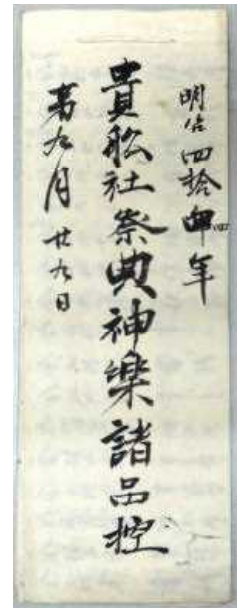 明治四拾四年
貴舩社祭典神楽諸品控
舊九月廿九日